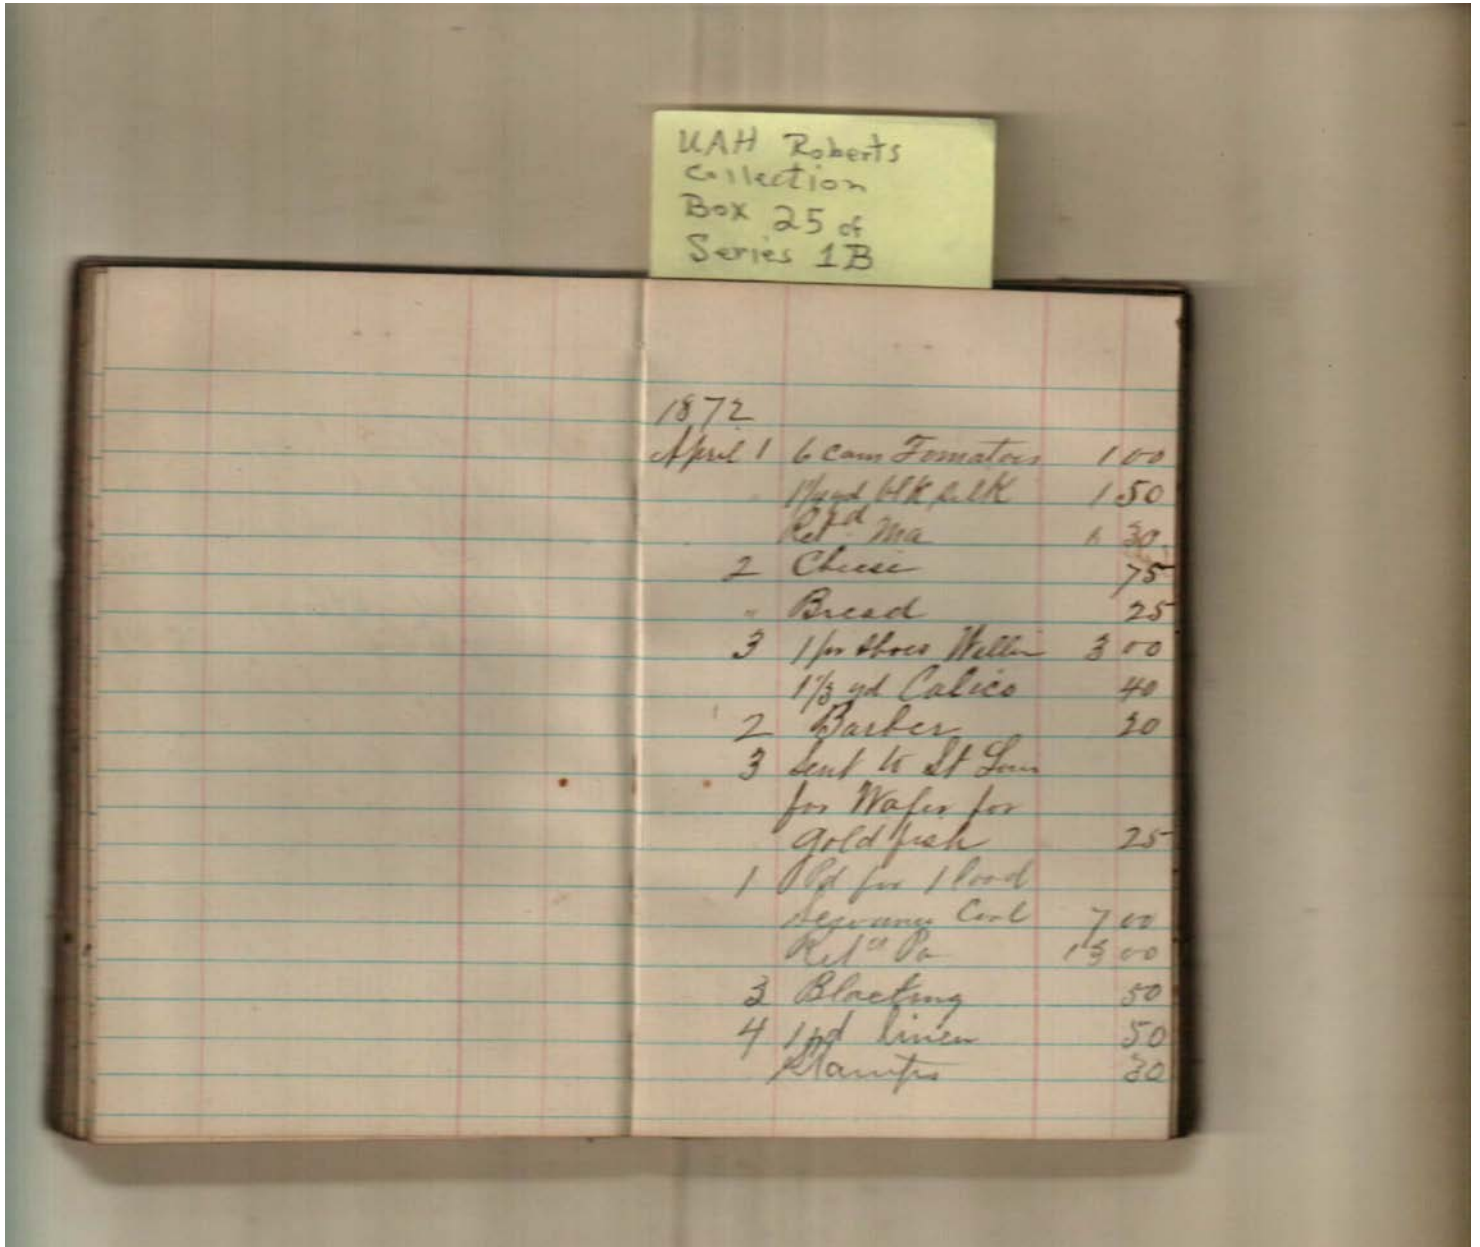 UAH Roberts
Collection
Box 25 of
Series 1B
1872
April 1 6 cans Tomatoes 1 00
1 1/4 yd blk silk 1 50
Retd Ma 30
2 Cheese 75
" Bread 25
3 1 pr Shoes Willie 3 00
1 1/3 yd Calico 40
2 Barber 20
3 Sent to St Louis
for Wafer for
gold fish 25
1 Pd for 1 load
Coal 7 00
Retd Pa 13 00
3 Blacking 50
4 1 yd linen 50
Stamps 30